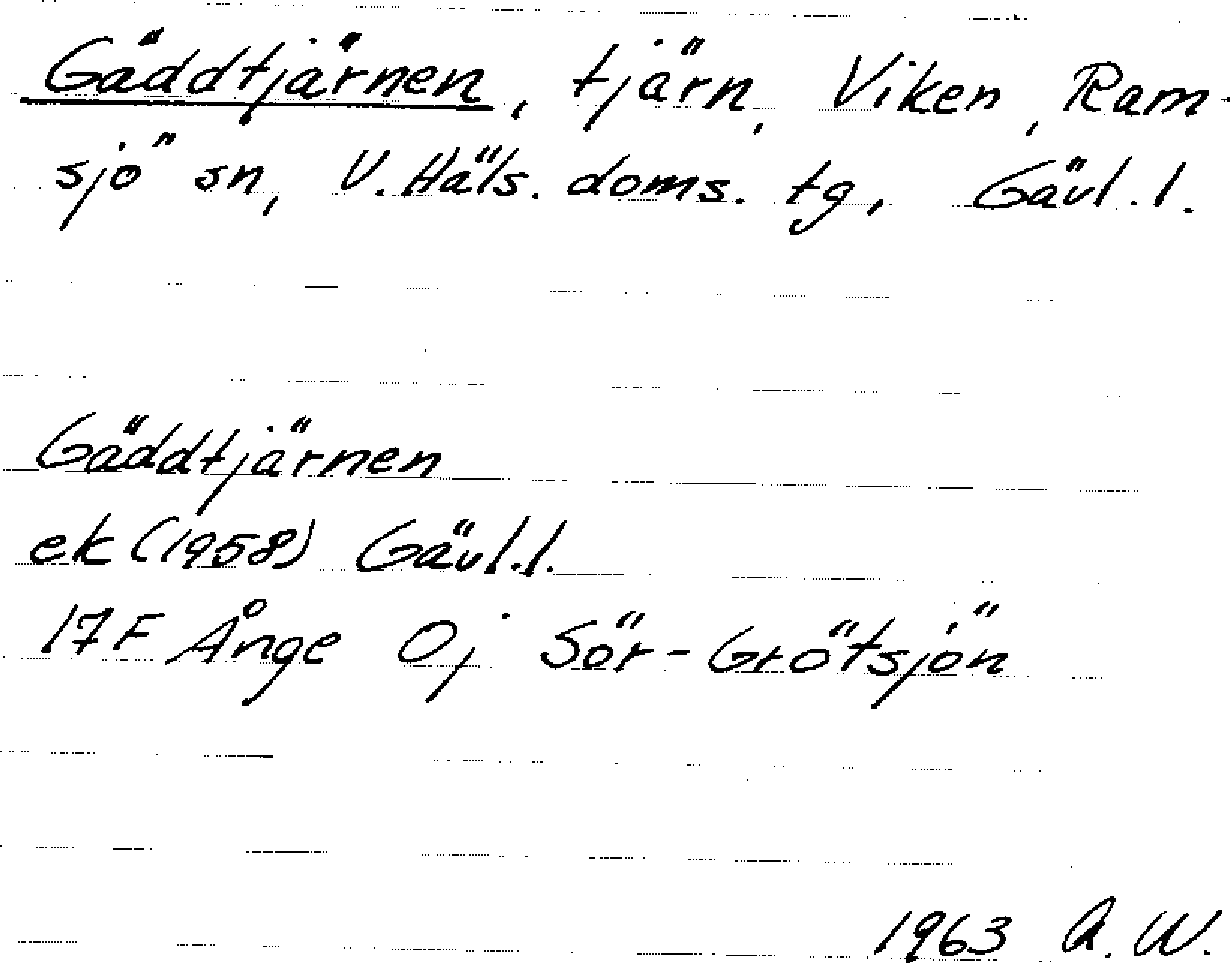 Gäddtjärnen, tjärn, Viken, Ram-
sjö sn, V. Häls. doms. tg, Gävl. l.
Gäddtjärnen
ek (1958) Gävl. l.
17F Ånge 0j Sör-Grötsjön
1963 A. W.